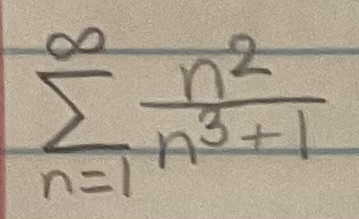 ∑_{n=1}^{∞} n²/(n³+1)